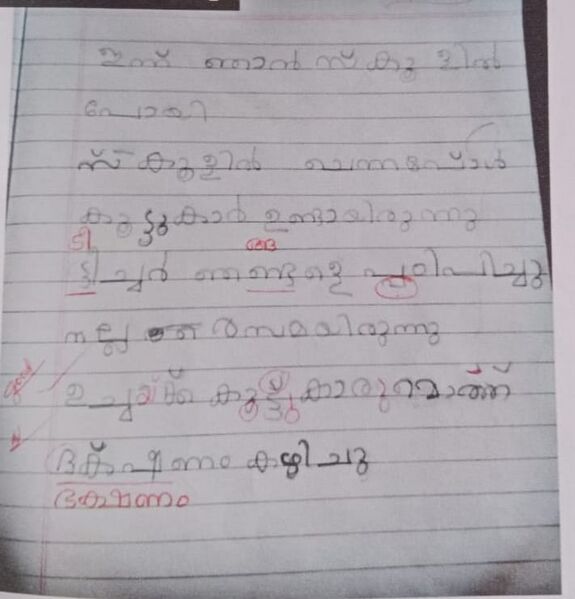 ഇന്ന് ഞാൻ സ്കൂളിൽ
പോയി
സ്കൂളിൽ ചെന്നപ്പോൾ
കുട്ടുകാർ ഉണ്ടായിരുന്നു
ടീ
ങ്ങ
ടീച്ചർ ഞങ്ങളെ പഠിപ്പിച്ചു
നല്ല രസമായിരുന്നു
ഉച്ചയ്ക്ക് കൂട്ടുകാരുമൊത്ത്
ഭക്ഷണം കഴിച്ചു
ഭക്ഷണം